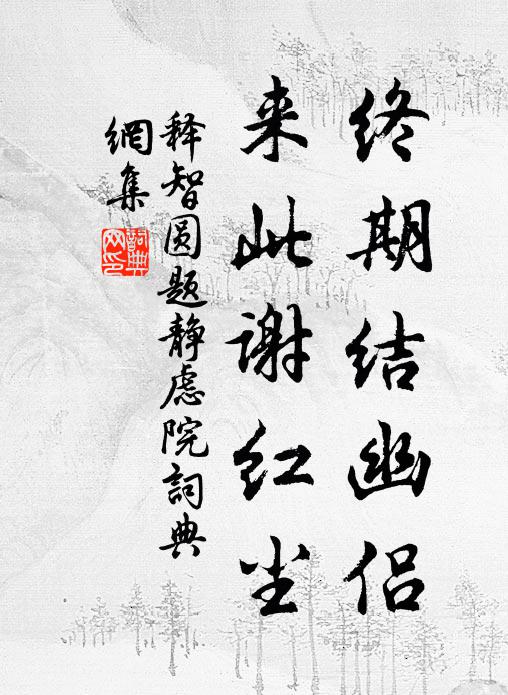 终期结幽侣
来此谢红尘
释智圆题静虑院詞典
網集
詞典网印